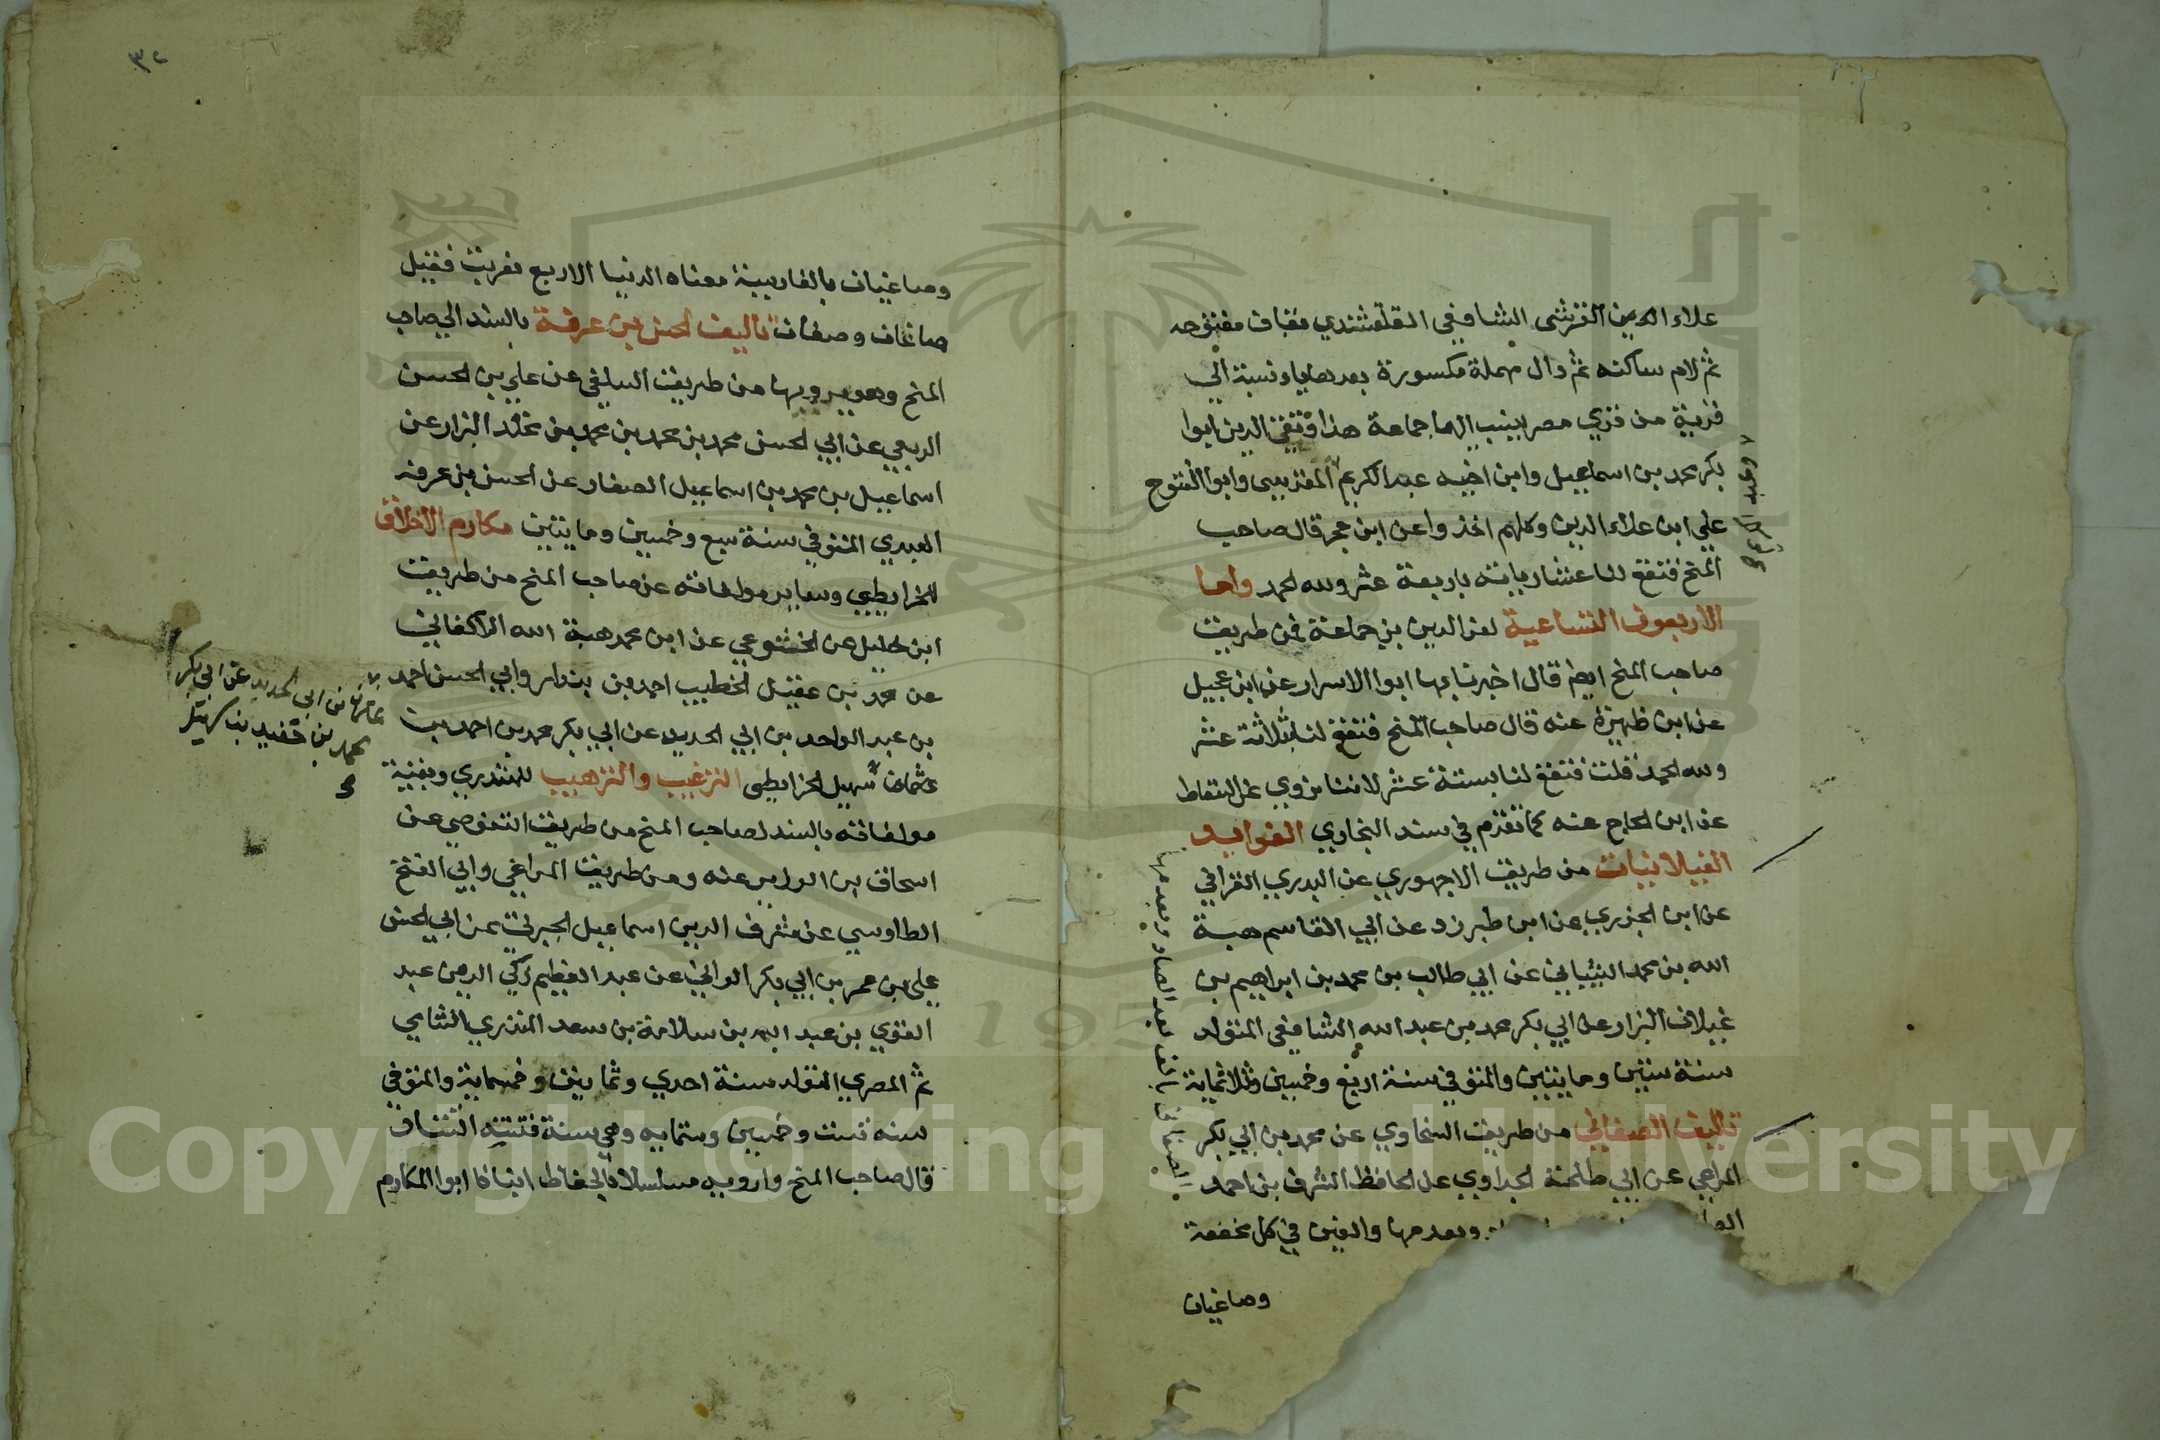 علاء الدين القرشي الشافعي القلقشندي بقاف مفتوحه
ثم لام ساكنه ثم دال مهملة مكسورة بعدها ياء نسبة الي
قرية من قري مصر ينسب اليها جماعة هذا وتقي الدين ابوا
بكر محمد بن اسماعيل وابن اخيه عبد الكريم المقدسي وابوا الفتوح
علي ابن علاء الدين وكلهم اخذوا عن ابن حجر قال صاحب
المنح فتقع لنا عشارياته باربعة عشر ولله الحمد واما
الاربعون التساعية لعز الدين بن جماعة فمن طريق
صاحب المنح ايضا قال اخبرنا بها ابوا الاسرار عن ابن عجيل
عن ابن ظهيرة عنه قال صاحب المنح فتقع لنا بثلاثة عشر
ولله الحمد قلت فتقع لنا بستة عشر لاننا نروي عن
عن ابن الحاج عنه كما تقدم في سند البخاري الفوايد
الغيلانيات من طريق الاجهوري عن البدري القرافي
عن ابن الجزري عن ابن طبرزد عن ابي القاسم هبة
الله بن محمد الشيباني عن ابي طالب بن محمد بن ابراهيم بن
غيلان البزار عن ابي بكر محمد بن عبد الله الشافعي المتولد
سنة ستين ومايتين والمتوفي سنة اربع وخمسين وثلاثماية
تاليف الصغاني من طريق السخاوي عن محمد بن ابي بكر
المراغي عن ابي طلحة الحراوي عن الحافظ الشرف بن احمد
وبعدها والغين في كل مخففة
وصاغيان
بالف بعد الصاد وبعدمها
٣٢
وصاغيان بالفارسية معناه الدنيا الاربع فعربت فقيل
صاغان وصغان تاليف الحسن بن عرفة بالسند الي صاحب
المنح وهو يرويها من طريق السلفي عن علي بن الحسين
الربعي عن ابي الحسن محمد بن محمد بن محمد بن مخلد البزار عن
اسماعيل بن محمد بن اسماعيل الصفار عن الحسن بن عرفه
العبدي المتوفي سنة سبع وخمسين ومايتين مكارم الاخلاق
للخرايطي وساير مولفاته عن صاحب المنح من طريق
ابن خليل عن الخشوعي عن ابن محمد هبة الله الاكفاني
عن محمد بن عقيل الخطيب احمد بن بندار وابي الحسن احمد
بن عبد الواحد بن ابي الحديد عن ابي بكر محمد بن احمد بن
عثمان سهيل الخرايطي الترغيب والترهيب للمنذري وبقية
مولفاته بالسند لصاحب المنح من طريق التنوخي عن
اسحاق بن الوزير عنه ومن طريق المراغي وابي الفتح
الطاوسي عن شرف الدين اسماعيل الجبرتي عن ابي الحسن
علي بن عمر بن ابي بكر الواني عن عبد العظيم زكي الدين عبد
القوي بن عبد الله بن سلامة بن سعد المنذري الشامي
ثم المصري المتولد سنة احدي وثمانين وخمسماية والمتوفي
سنه ست وخمسين وستمايه وهي سنة فتنة التتار
قال صاحب المنح وارويه مسلسلا بالحفاظ انبانا ابوا المكارم
بن ابي الحديد عن ابي بكر
محمد بن